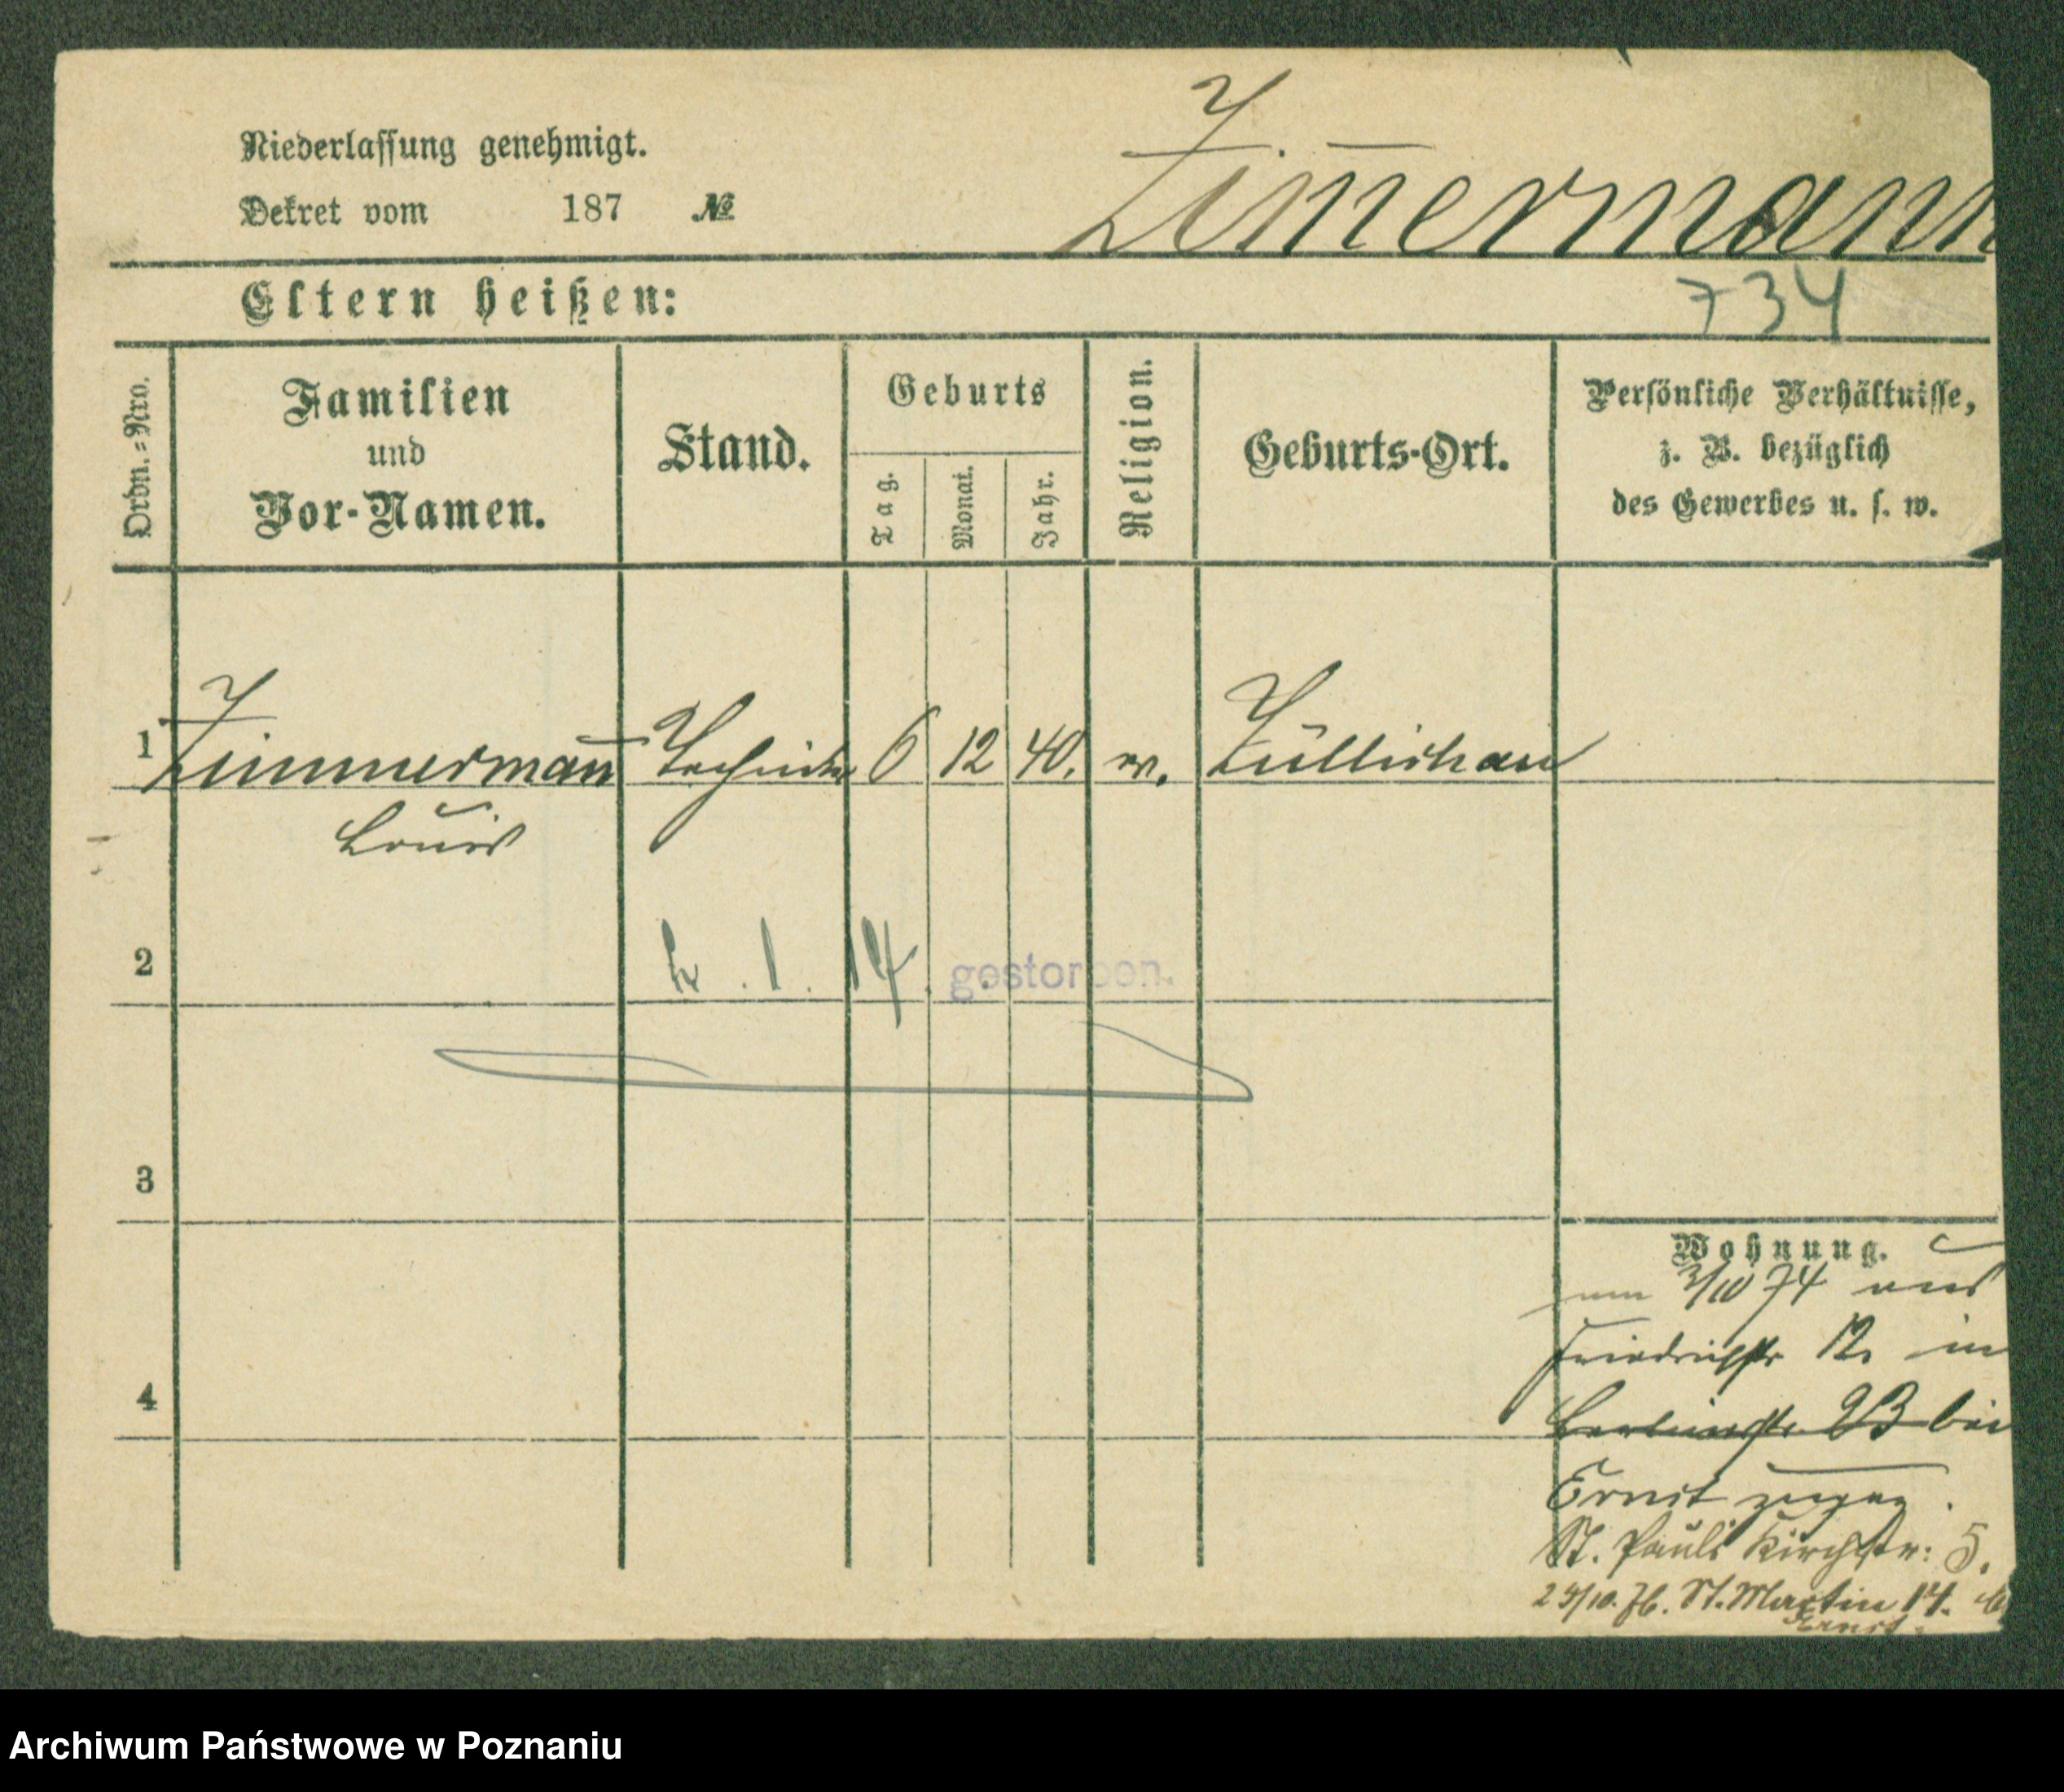 Niederlassung genehmigt.
Dekret vom 187 №
Zim̅ermann
Eltern heißen:
734
Ordn.=Nro.
Familien
und
Vor-Namen.
Stand.
Geburts
Tag.
Monat.
Jahr.
Religion.
Geburts-Ort.
Persönliche Verhältnisse,
z. B. bezüglich
des Gewerbes u. s. w.
1 Zimmerman̅ Techniker 6 12 40. ev. Züllichau
Louis
2 1. 14. gestorben.
3
Wohnung.
3/10 74 aus
Friedrichstr 12 in
4
Berlinerstr. 23 bei
Ernst
St. Pauli Kirchstr: 5.
24/10. 76. St. Martin 14. b
Ernst.
Archiwum Państwowe w Poznaniu